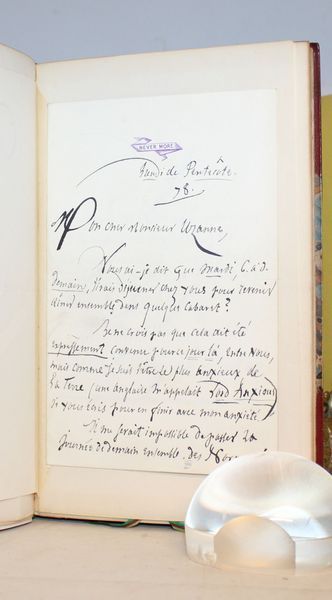 NEVER MORE
Lundi de Pentecôte.
78.
Mon cher Monsieur Uzanne,
Vous ai-je dit que mardi C. à d.
demain, j'irais déjeuner chez vous pour revenir
dîner ensemble dans quelque cabaret?
Je ne crois pas que cela ait été
expressément convenu pour ce jour là, entre nous,
mais comme je suis l'être le plus anxieux de
la Terre (une anglaise m'appelait Lord Anxious)
je vous écris pour en finir avec mon anxiété.
Il me serait impossible de passer la
journée de demain ensemble. Des